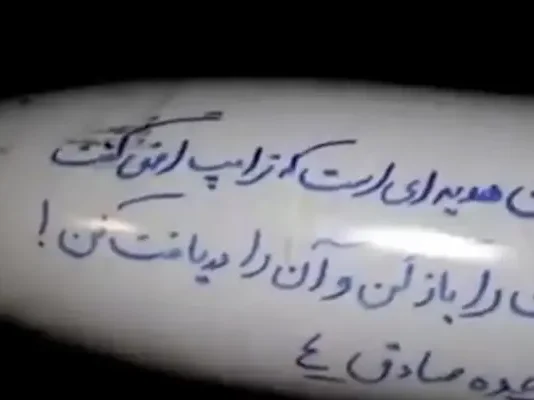 هدیه ای است که ترامپ احمق گفت
را باز کن و آن را دریافت کن!
صادق ٤